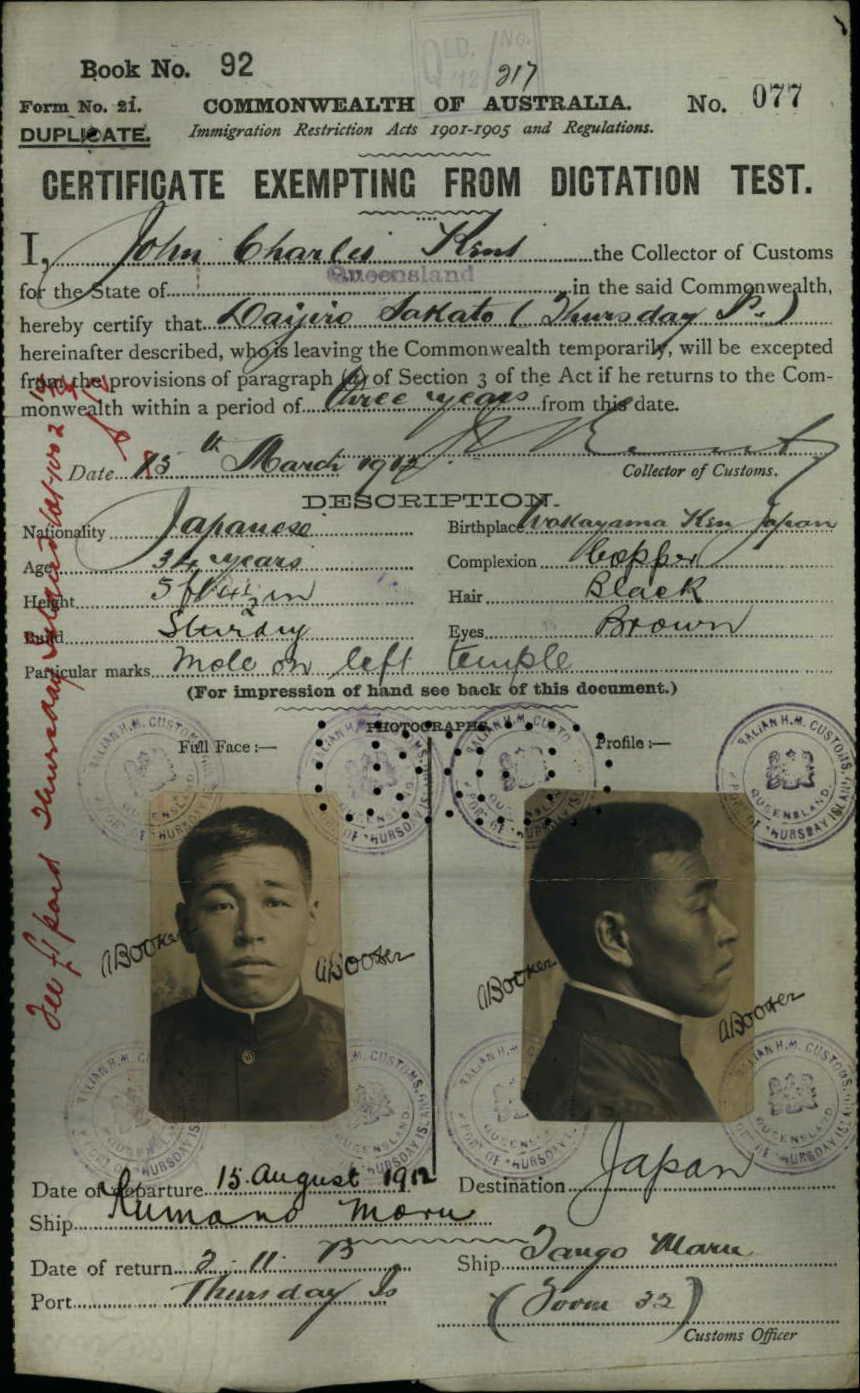 Book No. 92
QLD.
No.
217
Form No. 21.
COMMONWEALTH OF AUSTRALIA.
No. 077
DUPLICATE.
Immigration Restriction Acts 1901-1905 and Regulations.
CERTIFICATE EXEMPTING FROM DICTATION TEST.
I, John Charles Kent the Collector of Customs
for the State of Queensland in the said Commonwealth,
hereby certify that Daijiro Takato (Thursday Is.)
hereinafter described, who is leaving the Commonwealth temporarily, will be excepted
from the provisions of paragraph (a) of Section 3 of the Act if he returns to the Com-
monwealth within a period of three years from this date.
Date 13th March 1912.
Collector of Customs.
DESCRIPTION.
Nationality Japanese
Birthplace Wakayama Ken Japan
Age 34 years
Complexion Copper
Height 5 ft in
Hair Black
Build Sturdy
Eyes Brown
Particular marks Mole on left temple
(For impression of hand see back of this document.)
PHOTOGRAPHS.
Full Face :—
Profile :—
ABooker
ABooker
ABooker
ABooker
Fee £1 paid Thursday Island
Date of departure 15 August 1912
Destination Japan
Ship Kumano Maru
Date of return 2. 11. 13
Ship Tango Maru
Port Thursday Is
(Form 32)
Customs Officer